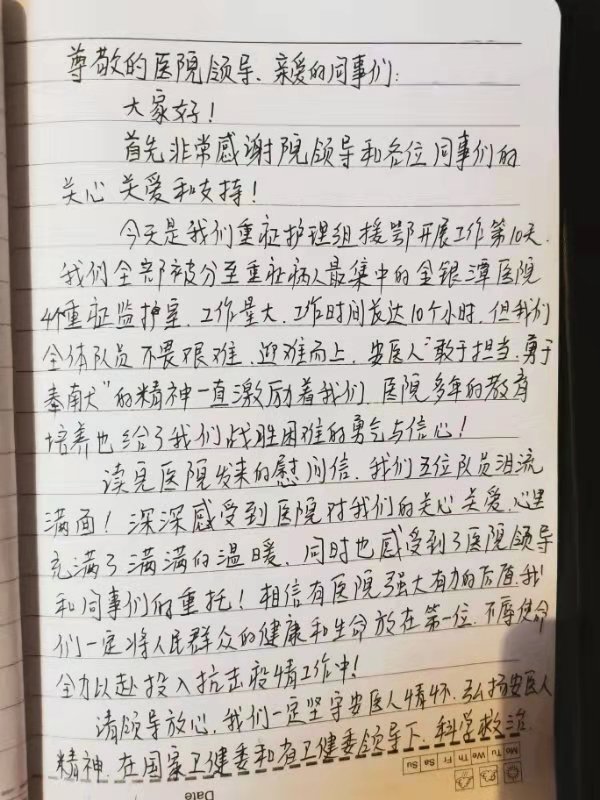 尊敬的医院领导、亲爱的同事们:
大家好!
首先非常感谢院领导和各位同事们的
关心 关爱和支持!
今天是我们重症护理组援鄂开展工作第10天.
我们全部被分至重症病人最集中的金银潭医院
4个重症监护室. 工作量大. 工作时间长达10个小时. 但我们
全体队员 不畏艰难. 迎难而上. 安医人"敢于担当. 勇于
奉献"的精神一直激励着我们. 医院多年的教育
培养也给了我们战胜困难的勇气与信心!
读完医院发来的慰问信. 我们五位队员泪流
满面! 深深感受到医院对我们的关心关爱. 心里
充满了满满的温暖. 同时也感受到了医院领导
和同事们的重托! 相信有医院强大有力的后盾. 我
们一定将人民群众的健康和生命放在第一位. 不辱使命
全力以赴投入抗击疫情工作中!
请领导放心. 我们一定坚守安医人情怀. 弘扬安医人
精神. 在国家卫健委和省卫健委领导下. 科学救治.
Mo Tu We Th Fr Sa Su
Date